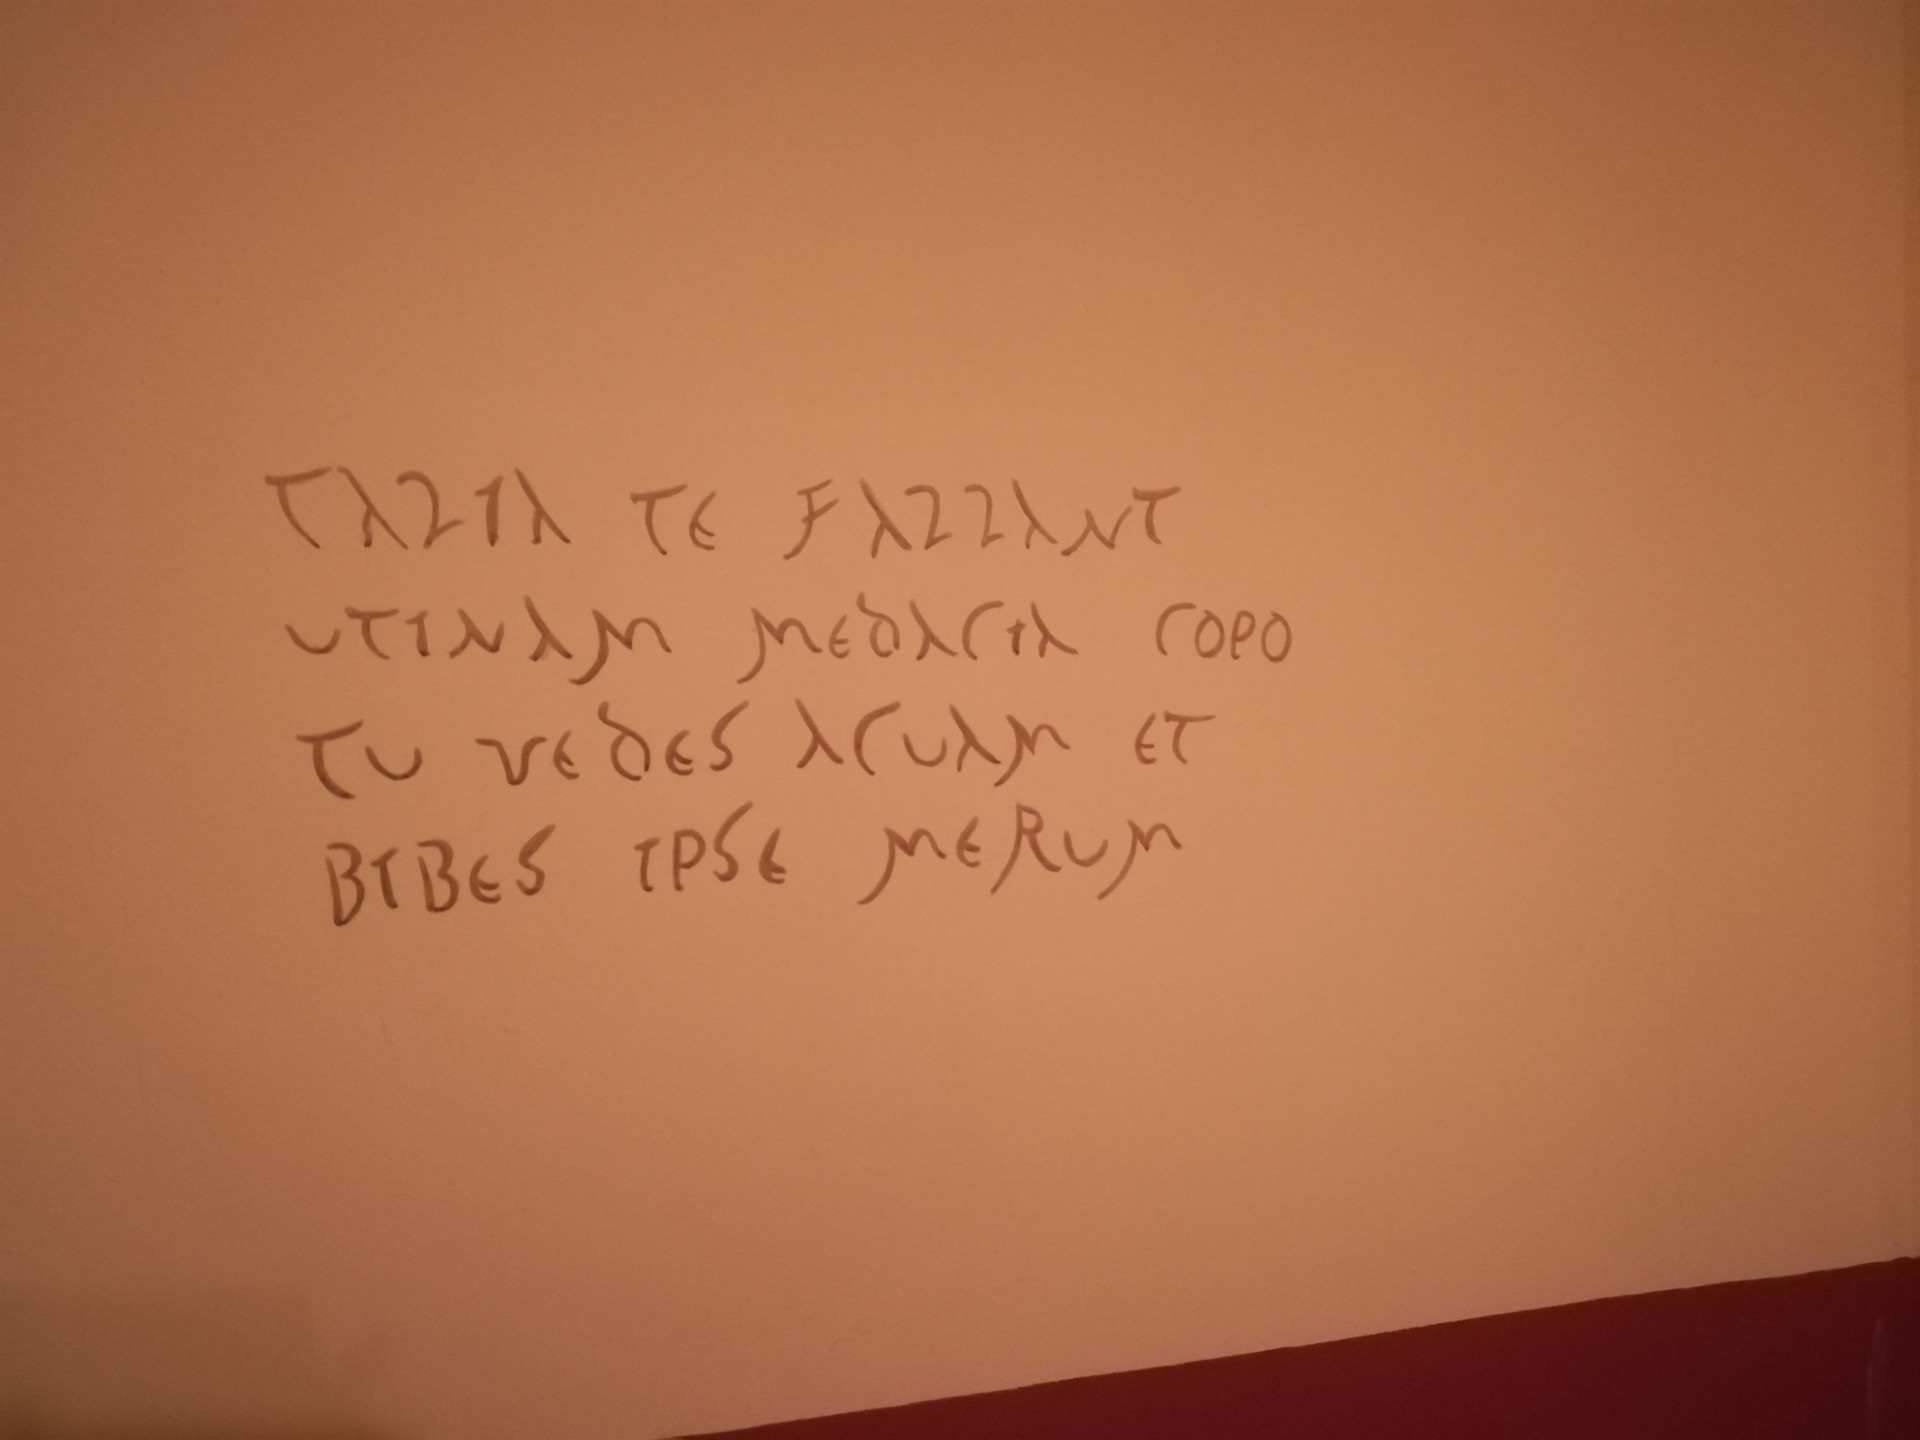 TALIA TE FALLANT
UTINAM MEDACIA COPO
TU VEDES ACUAM ET
BIBES IPSE MERUM